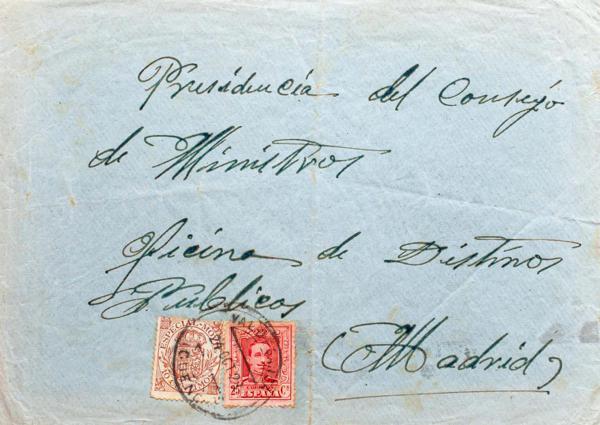 Presidencia del Consejo
de Ministros
Oficina de Distinos
Publicos
(Madrid)
ESPECIAL MOVIL
25 Cs
ESPAÑA
CUENCA